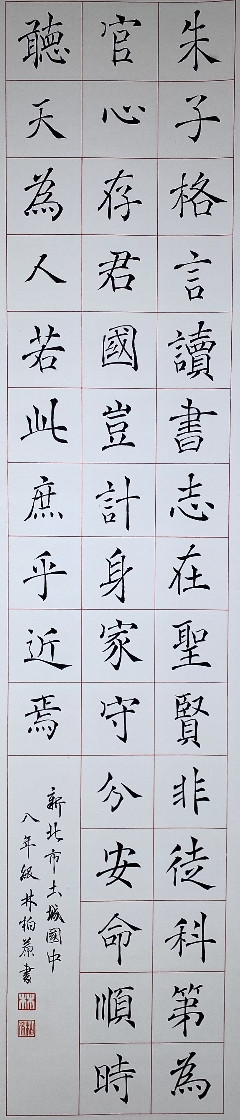 朱子格言讀書志在聖賢非徒科第為
官心存君國豈計身家守分安命順時
聽天為人若此庶乎近焉
新北市土城國中
八年級林柏蒝書